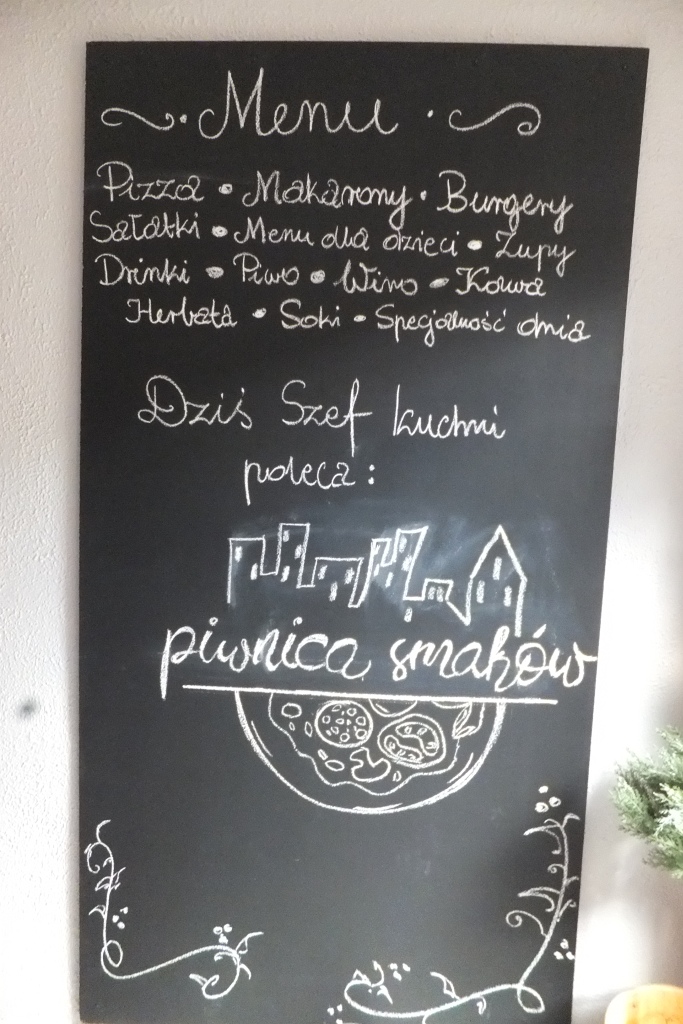 Menu
Pizza • Makarony • Burgery
Sałatki • Menu dla dzieci • Zupy
Drinki • Piwo • Wino • Kawa
Herbata • Soki • Specjalność dnia
Dziś Szef kuchni
poleca:
piwnica smaków